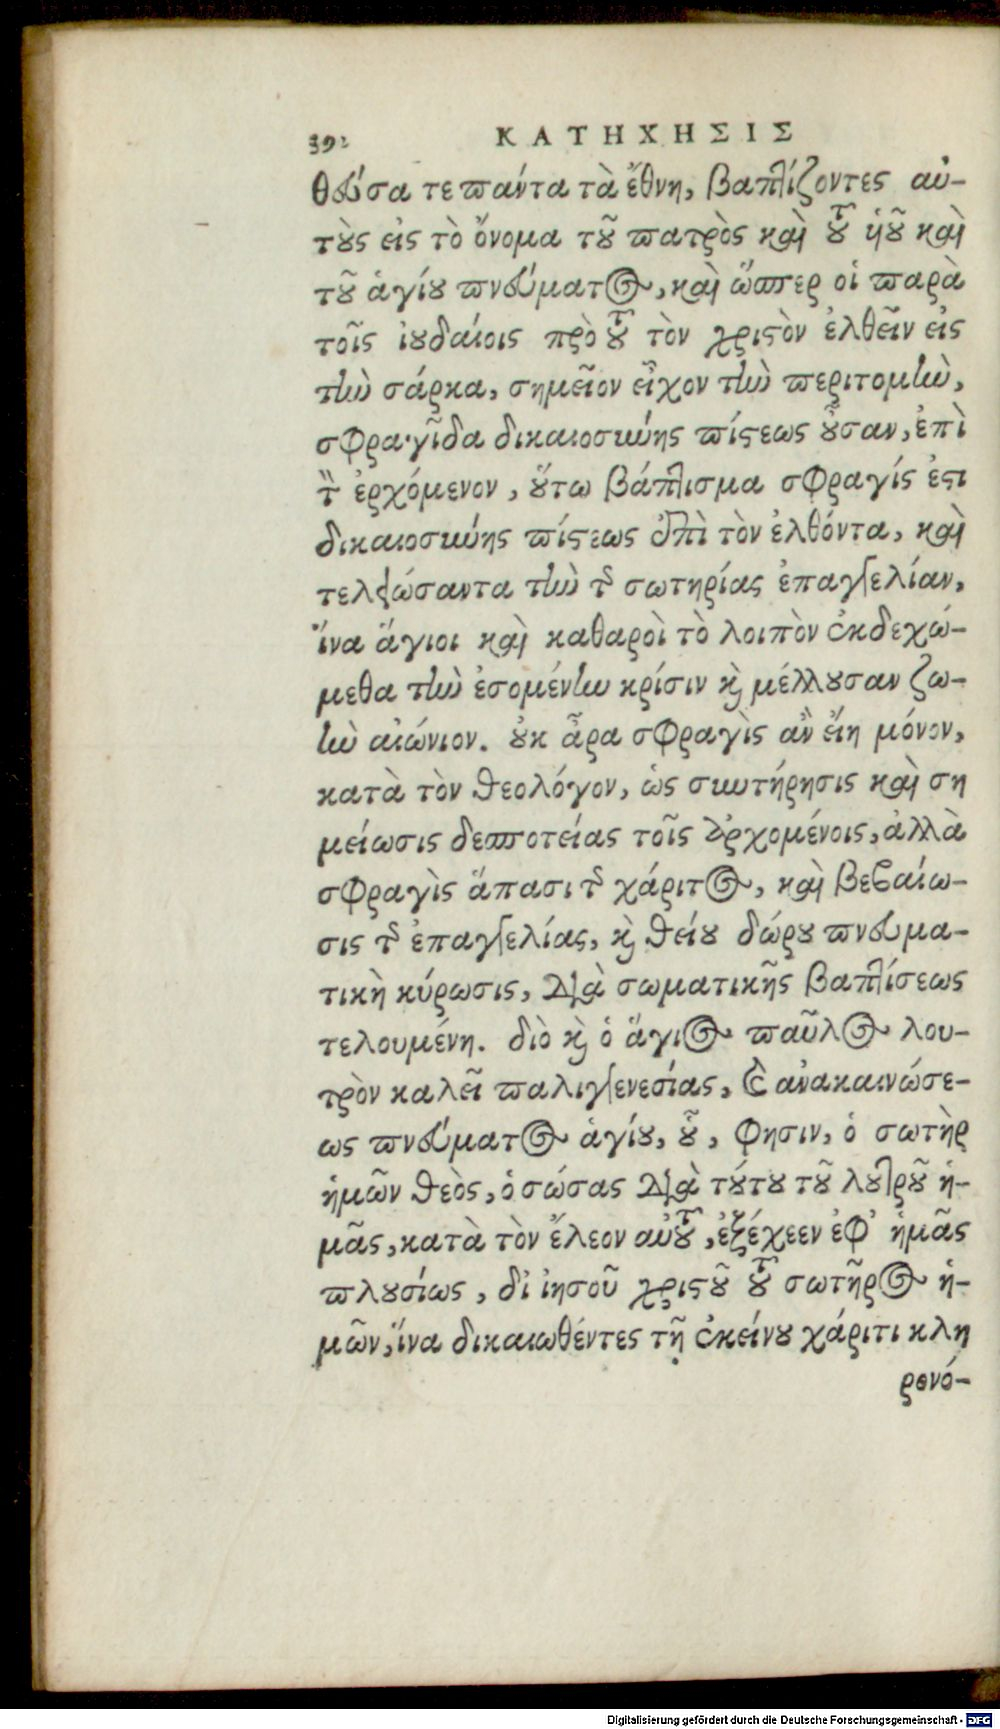 392 ΚΑΤΗΧΗΣΙΣ
θεύσατε πάντα τὰ ἔθνη, βαπτίζοντες αὐ-
τοὺς εἰς τὸ ὄνομα τοῦ πατρὸς καὶ τοῦ ὑοῦ καὶ
τοῦ ἁγίου πνεύματος, καὶ ὥσπερ οἱ παρὰ
τοῖς ἰουδαίοις πρὸ τοῦ τὸν χριστὸν ἐλθεῖν εἰς
τὴν σάρκα, σημεῖον εἶχον τὴν περιτομὴν,
σφραγῖδα δικαιοσύνης πίστεως οὖσαν, ἐπὶ
τὸν ἐρχόμενον, οὕτω βάπτισμα σφραγίς ἐστι
δικαιοσύνης πίστεως ἐπὶ τὸν ἐλθόντα, καὶ
τελειώσαντα τὴν τῆς σωτηρίας ἐπαγγελίαν,
ἵνα ἅγιοι καὶ καθαροὶ τὸ λοιπὸν ἐκδεχώ-
μεθα τὴν ἐσομένην κρίσιν καὶ μέλλουσαν ζω-
ὴν αἰώνιον. οὐκ ἆρα σφραγὶς ἂν εἴη μόνον,
κατὰ τὸν θεολόγον, ὡς συντήρησις καὶ ση
μείωσις δεσποτείας τοῖς ἀρχομένοις, ἀλλὰ
σφραγὶς ἅπασι τῆς χάριτος, καὶ βεβαίω-
σις τῆς ἐπαγγελίας, καὶ θείου δώρου πνευμα-
τικὴ κύρωσις, διὰ σωματικῆς βαπτίσεως
τελουμένη. διὸ καὶ ὁ ἅγιος παῦλος λου-
τρὸν καλεῖ παλιγγενεσίας, καὶ ἀνακαινώσε-
ως πνεύματος ἁγίου, οὗ, φησιν, ὁ σωτὴρ
ἡμῶν θεὸς, ὁ σώσας διὰ τούτου τοῦ λουτροῦ ἡ-
μᾶς, κατὰ τὸν ἔλεον αὐτοῦ, ἐξέχεεν ἐφ' ἡμᾶς
πλουσίως, δι ἰησοῦ χριστοῦ τοῦ σωτῆρος ἡ-
μῶν, ἵνα δικαιωθέντες τῇ ἐκείνου χάριτι κλη
ρονό-
Digitalisierung gefördert durch die Deutsche Forschungsgemeinschaft - DFG